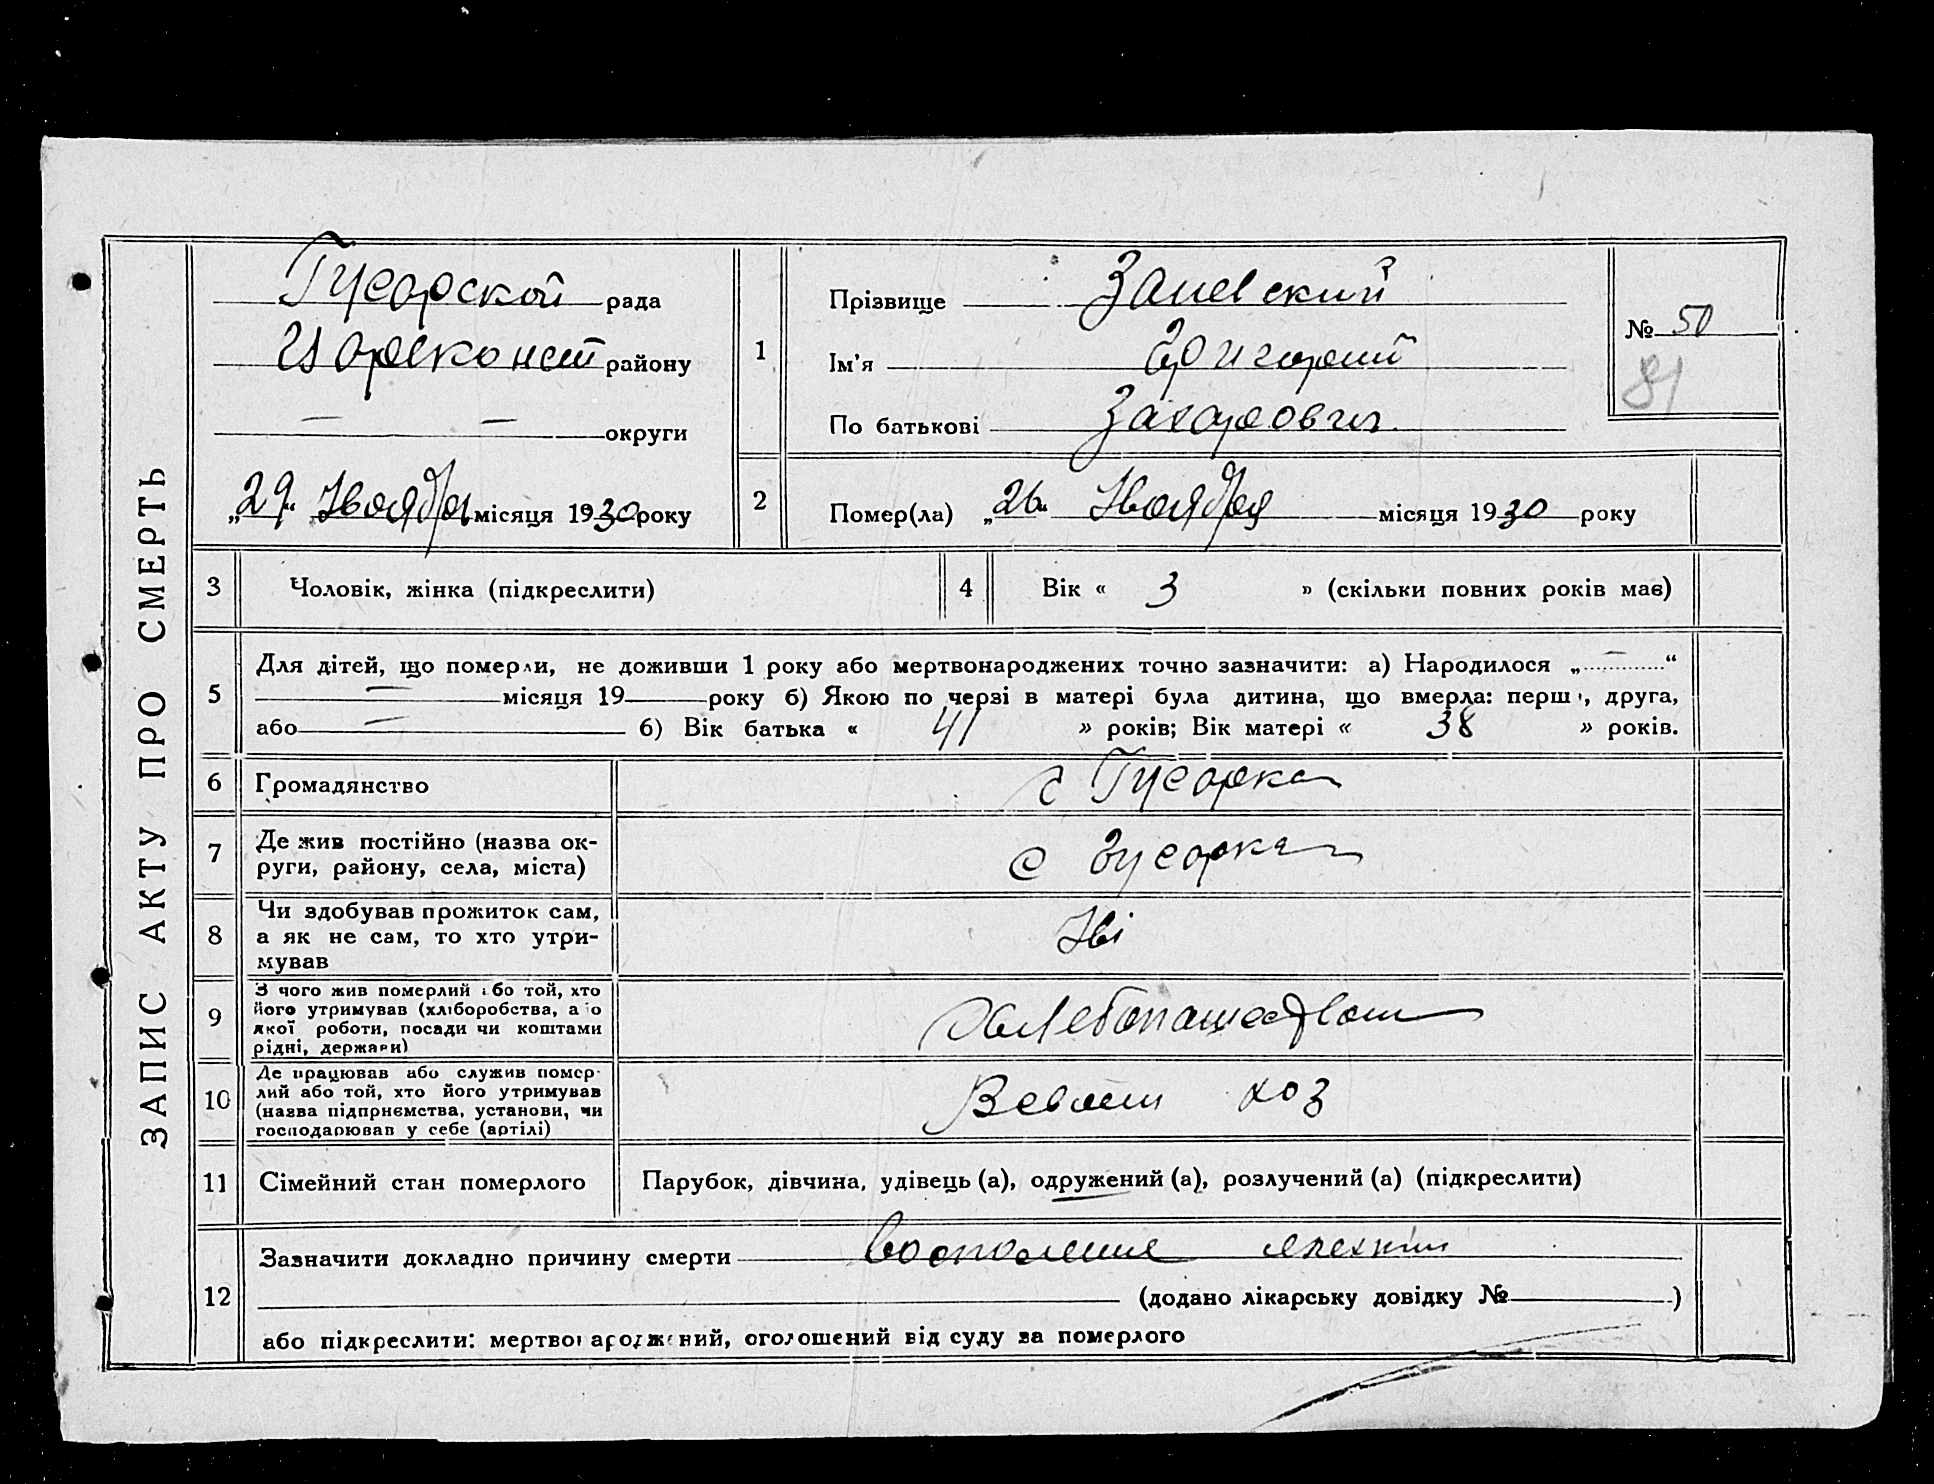 ЗАПИС АКТУ ПРО СМЕРТЬ
Гусарской рада
району
— — округи
„29“ Ноября місяця 1930 року
1
Прізвище Заневский
Ім'я Григорий
По батькові Захарович
№ 50
81
2
Помер(ла) „26“ Ноября місяця 1930 року
3 Чоловік, жінка (підкреслити)
4 Вік « 3 » (скільки повних років має)
5
Для дітей, що померли, не доживши 1 року або мертвонароджених точно зазначити: а) Народилося „ — “
— місяця 19 року б) Якою по черзі в матері була дитина, що вмерла: перша, друга,
або — б) Вік батька « 41 » років; Вік матері « 38 » років.
6 Громадянство с Гусарка
7
Де жив постійно (назва ок-
руги, району, села, міста)
с Гусарка
8
Чи здобував прожиток сам,
а як не сам, то хто утри-
мував
Ні
9
З чого жив померлий або той, хто
його утримував (хліборобства, або
якої роботи, посади чи коштами
рідні, держави)
10
Де працював або служив помер-
лий або той, хто його утримував
(назва підприємства, установи, чи
господарював у себе (артілі)
хоз
11 Сімейний стан померлого Парубок, дівчина, удівець (а), одружений (а), розлучений (а) (підкреслити)
12
Зазначити докладно причину смерти воспаление
(додано лікарську довідку № )
або підкреслити: мертвонароджений, оголошений від суду за померлого